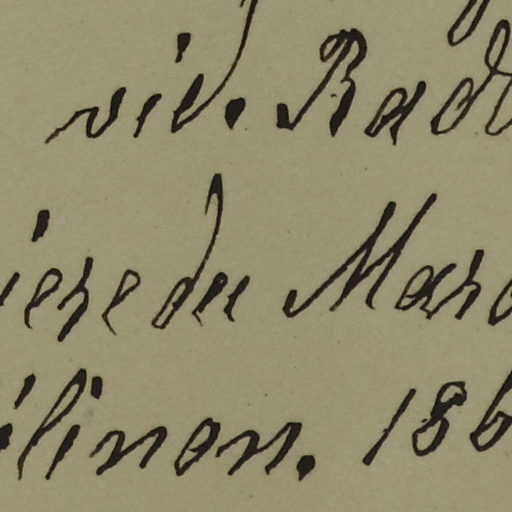 vid. Rad
iere du Mar
élinon. 186